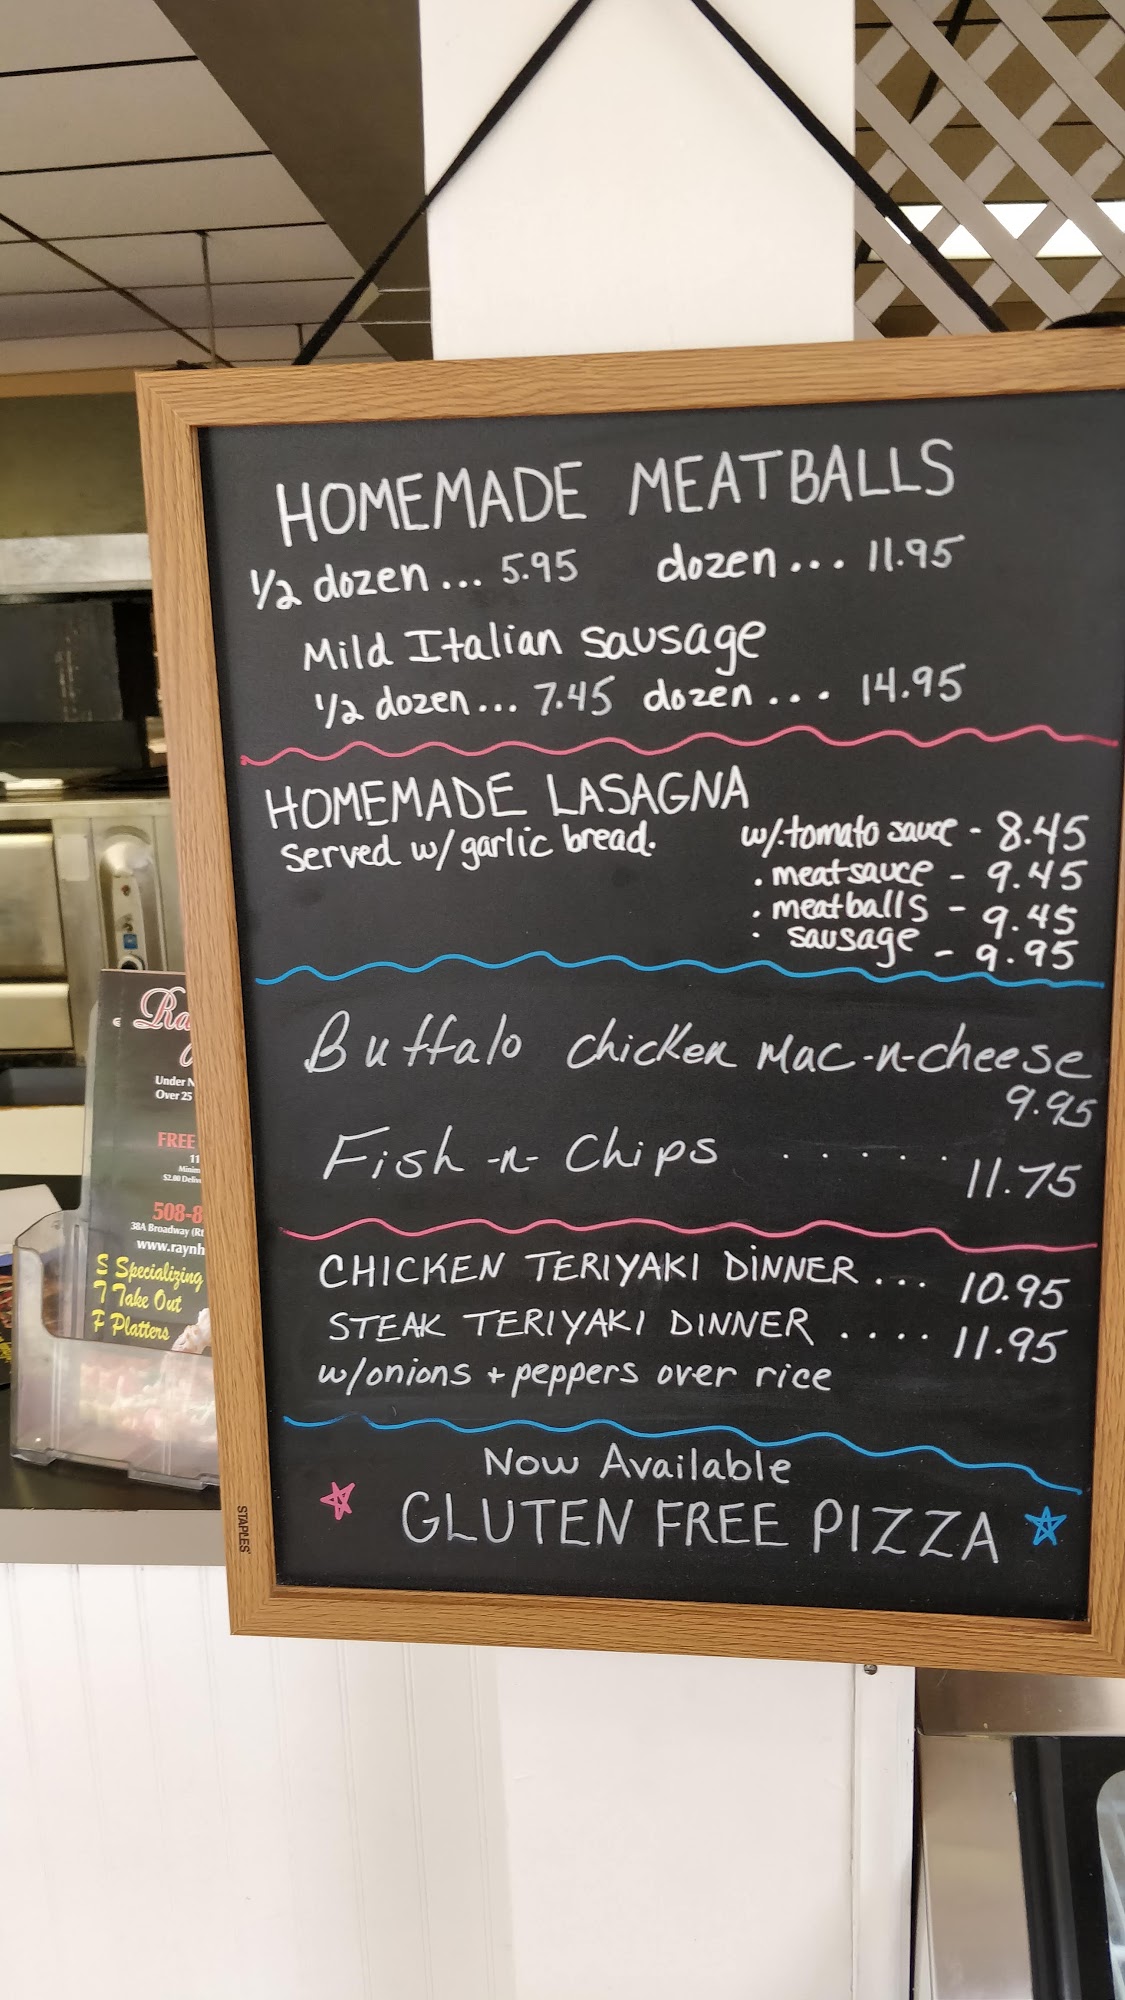 HOMEMADE MEATBALLS
1/2 dozen... 5.95 dozen... 11.95
Mild Italian sausage
1/2 dozen... 7.45 dozen... 14.95
HOMEMADE LASAGNA
served w/ garlic bread.
w/.tomato sauce - 8.45
. meatsauce - 9.45
. meatballs - 9.45
. sausage - 9.95
Buffalo chicken Mac-n-cheese
9.95
Fish -n- Chips ...... 11.75
CHICKEN TERIYAKI DINNER... 10.95
STEAK TERIYAKI DINNER .... 11.95
w/onions + peppers over rice
Now Available
GLUTEN FREE PIZZA
STAPLES
Under N
Over 25
FREE
11
Minim
$2.00 Deliv
508-8
38A Broadway (Rt
www.raynh
S Specializing
T Take Out
F Platters